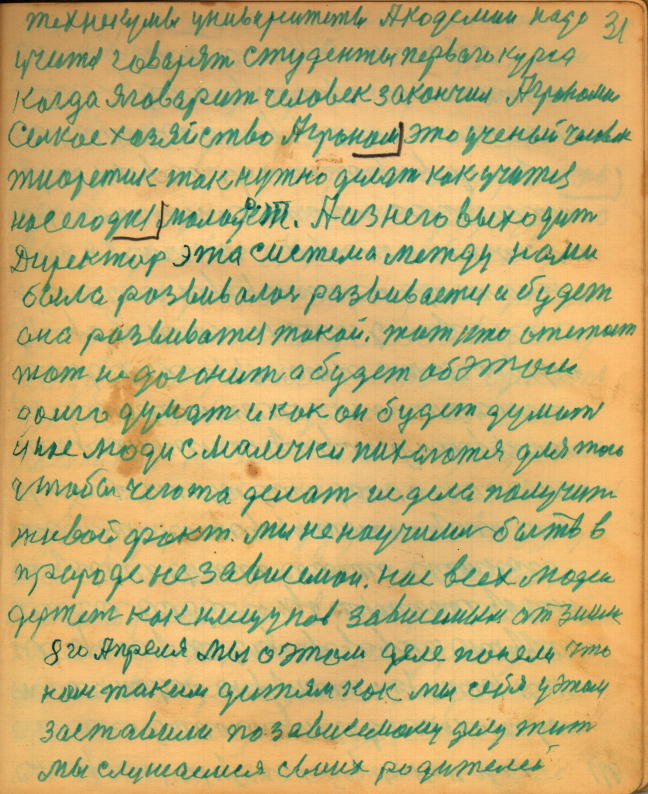 технекумы универитеты Академии надо 31
учится говарят студенты перваго курса
когда я говарит человек закончил Агрономи
Селкое хозяйство Агроном это ученый человек
тиоретик так нужно делат как учится
на сегодня молодеж. А из него выходит
Директор эта система между нами
была развивалася развивается и будет
она развиватся такой. тот кто отстает
тот недогонит а будет об этом
долго думат и как он будет думат
люди с малечки пихаются для того
чтобы чегота делат и с дела получит
живой факт. мы не научились быть в
природе независемом. нас всех люди
держет как зависемых от земли
8го Апреля мы о этом деле понели что
нам таким дитям как мы себя у этом
заставили по зависемому делу жит
мы слушаемся своих родителей